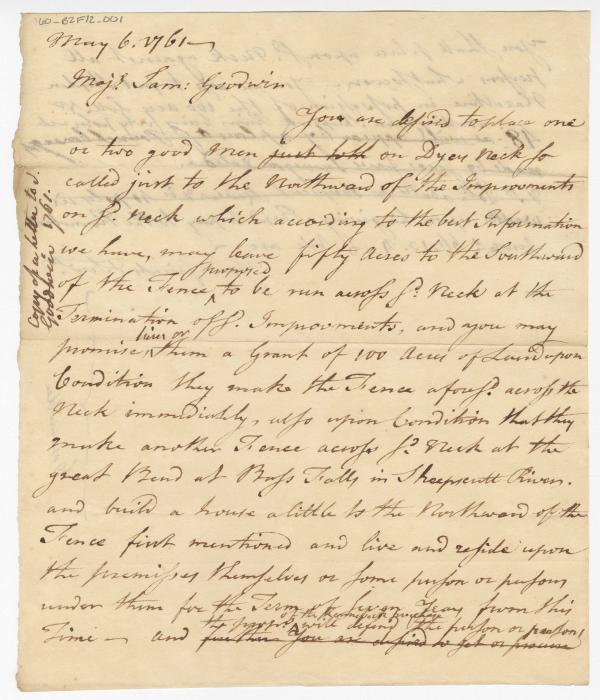 60-B2F12-001
May 6. 1761
Majr. Sam: Goodwin
You are desired to place one
or two good men just both on Dyer Neck so
called just to the Northward of the Improvments
on sd. Neck which according to the best Information
we have, may leave fifty Acres to the Southward
proposed
of the Fence to be run across sd. Neck at the
Termination of sd. Improvments, and you may
him or
promise them a Grant of 100 Acres of Land upon
Condition they make the Fence aforesd. across the
Neck immediately, also upon Condition that they
make another Fence across sd. Neck at the
great Bend at Bass Falls in Sheepscutt River.
and build a house a little to the Northward of the
Fence first mentioned and live and reside upon
the premisses themselves or some person or persons
under them for the Term of Seven Years from this
of the Kennebeck purchase
the propr. will defend the person or persons
Time — and further You are desired to let or procure
Copy of a letter to S.
Goodwin 1761.